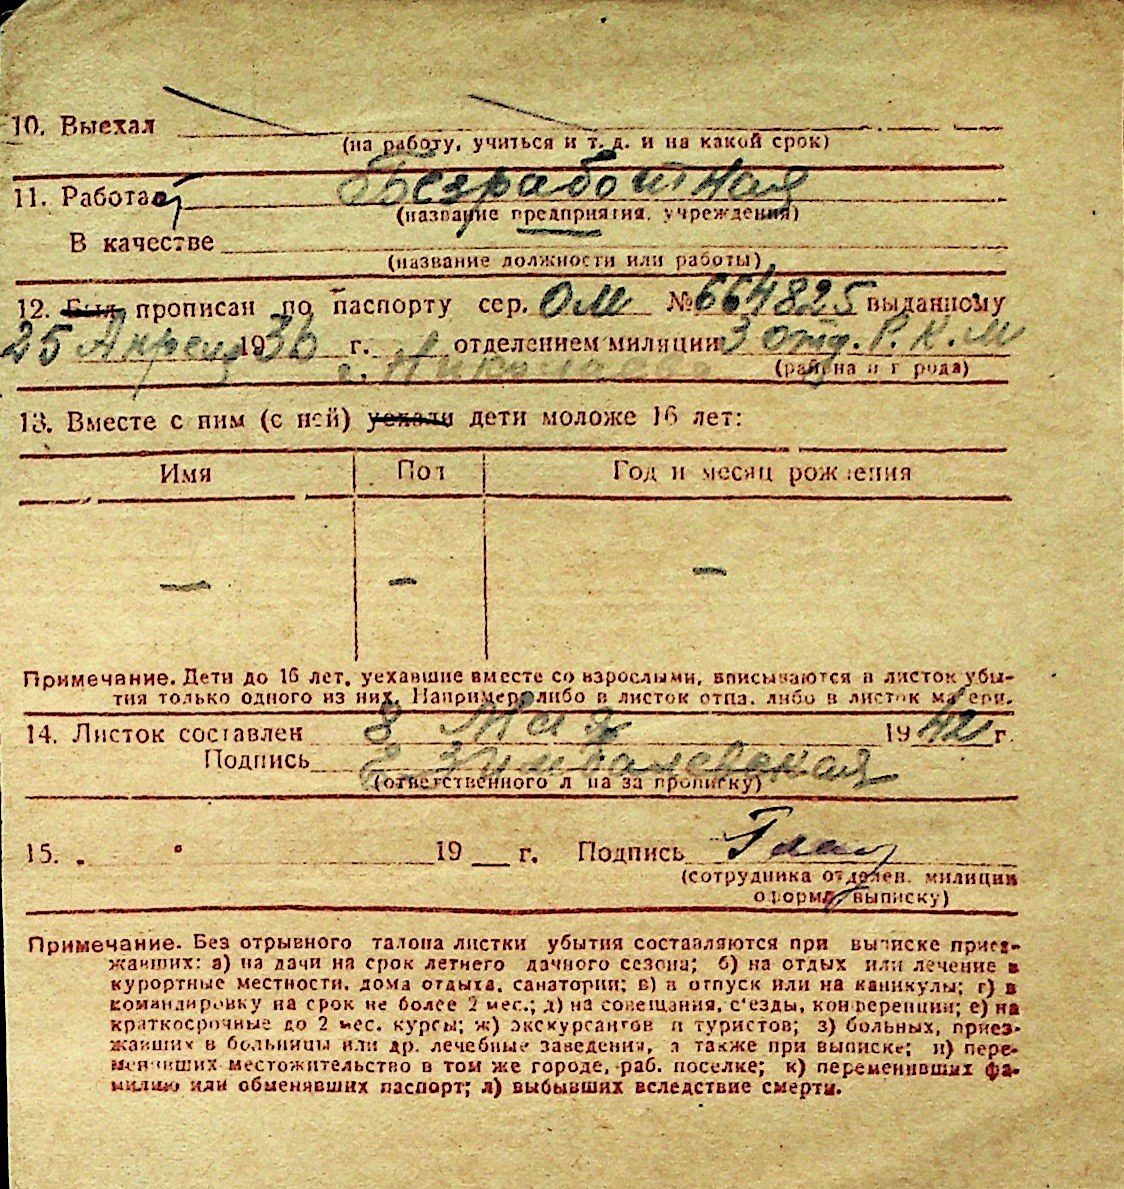 10. Выехал
(на работу, учиться и т. д. и на какой срок)
11. Работает Безработная
(название предприятия, учреждения)
В качестве
(название должности или работы)
12. Был прописан по паспорту сер. ОМ № 664825 выданному
25 Апреля 1936 г. отделением милиции 3 отд. Р. К. М
г. Николаева (района и города)
13. Вместе с ним (с ней) уехали дети моложе 16 лет:
Имя Пол Год и месяц рождения
— — —
Примечание. Дети до 16 лет, уехавшие вместе со взрослыми, вписываются в листок убы-
тия только одного из них. Например, либо в листок отца, либо в листок матери.
14. Листок составлен 8 Мая 1942 г.
Подпись
(ответственного лица за прописку)
15. " " 19 г. Подпись
(сотрудника отделен. милиции
оформ. выписку)
Примечание. Без отрывного талона листки убытия составляются при выписке приез-
жавших: а) на дачи на срок летнего дачного сезона; б) на отдых или лечение в
курортные местности, дома отдыха, санатории; в) в отпуск или на каникулы; г) в
командировку на срок не более 2 мес.; д) на совещания, с'езды, конференции; е) на
краткосрочные до 2 мес. курсы; ж) экскурсантов и туристов; з) больных, приез-
жавших в больницы или др. лечебные заведения, а также при выписке; и) пере-
менивших местожительство в том же городе, раб. поселке; к) переменивших фа-
милию или обменявших паспорт; л) выбывших вследствие смерти.